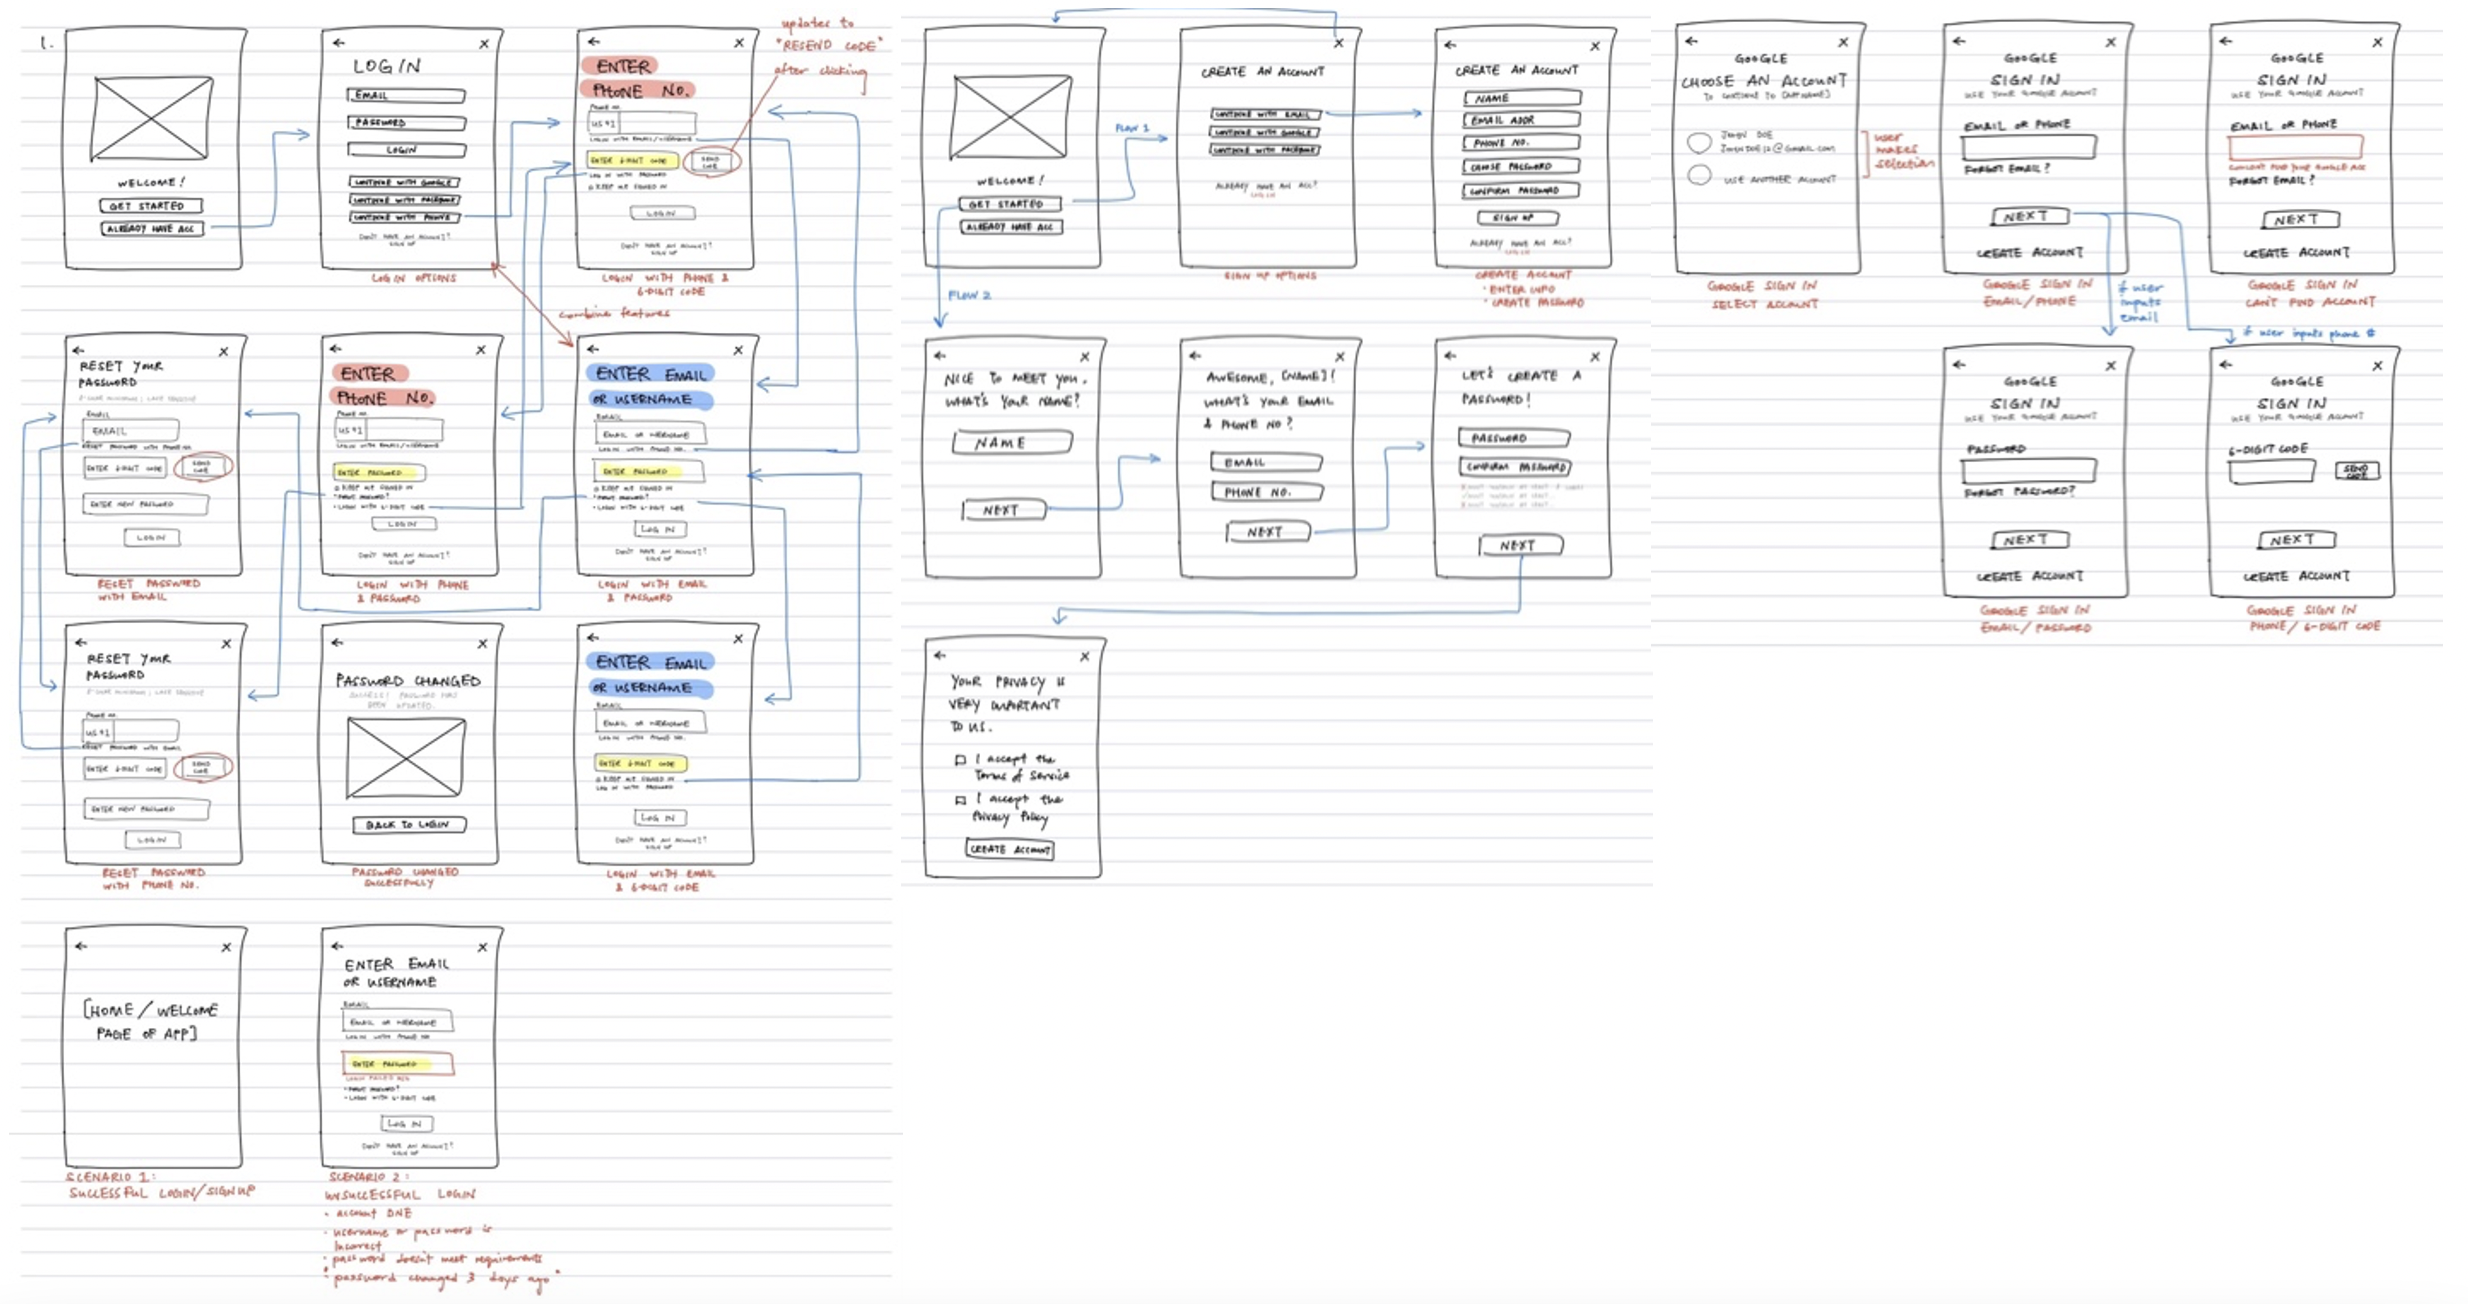 1.
WELCOME!
GET STARTED
ALREADY HAVE ACC
←
X
LOGIN
EMAIL
PASSWORD
LOGIN
CONTINUE WITH GOOGLE
CONTINUE WITH FACEBOOK
CONTINUE WITH PHONE
DON'T HAVE AN ACCOUNT?
SIGN UP
LOGIN OPTIONS
←
X
ENTER
PHONE NO.
PHONE NO.
US +1
LOGIN WITH EMAIL/USERNAME
ENTER 6-DIGIT CODE
SEND
CODE
LOG IN WITH PASSWORD
KEEP ME SIGNED IN
LOGIN
DON'T HAVE AN ACCOUNT?
SIGN UP
LOGIN WITH PHONE &
6-DIGIT CODE
updates to
"RESEND CODE"
after clicking
combine features
←
X
RESET YOUR
PASSWORD
EMAIL
EMAIL
RESET PASSWORD WITH PHONE NO.
ENTER 6-DIGIT CODE
SEND
CODE
ENTER NEW PASSWORD
LOGIN
RESET PASSWORD
WITH EMAIL
←
X
ENTER
PHONE NO.
PHONE NO.
US +1
LOGIN WITH EMAIL/USERNAME
ENTER PASSWORD
KEEP ME SIGNED IN
• FORGOT PASSWORD?
• LOGIN WITH 6-DIGIT CODE
LOGIN
DON'T HAVE AN ACCOUNT?
SIGN UP
LOGIN WITH PHONE
& PASSWORD
←
X
ENTER EMAIL
OR USERNAME
EMAIL
EMAIL OR USERNAME
LOGIN WITH PHONE NO.
ENTER PASSWORD
KEEP ME SIGNED IN
• FORGOT PASSWORD?
• LOGIN WITH 6-DIGIT CODE
LOG IN
DON'T HAVE AN ACCOUNT?
SIGN UP
LOGIN WITH EMAIL
& PASSWORD
←
X
RESET YOUR
PASSWORD
PHONE NO.
US +1
RESET PASSWORD WITH EMAIL
ENTER 6-DIGIT CODE
SEND
CODE
ENTER NEW PASSWORD
LOGIN
RESET PASSWORD
WITH PHONE NO.
←
X
PASSWORD CHANGED
SUCCESS! PASSWORD HAS
BEEN UPDATED.
BACK TO LOGIN
PASSWORD CHANGED
SUCCESSFULLY
←
X
ENTER EMAIL
OR USERNAME
EMAIL
EMAIL OR USERNAME
LOGIN WITH PHONE NO.
ENTER 6-DIGIT CODE
KEEP ME SIGNED IN
LOG IN WITH PASSWORD
LOG IN
DON'T HAVE AN ACCOUNT?
SIGN UP
LOGIN WITH EMAIL
& 6-DIGIT CODE
←
X
[HOME/WELCOME
PAGE OF APP]
SCENARIO 1:
SUCCESSFUL LOGIN/SIGNUP
←
X
ENTER EMAIL
OR USERNAME
EMAIL
EMAIL OR USERNAME
LOGIN WITH PHONE NO
ENTER PASSWORD
LOGIN FAILED MSG
• FORGOT PASSWORD?
• LOGIN WITH 6-DIGIT CODE
LOG IN
DON'T HAVE AN ACCOUNT?
SIGN UP
SCENARIO 2:
UNSUCCESSFUL LOGIN
- account DNE
• username or password is
incorrect
• password doesn't meet requirements
• "password changed 3 days ago"
WELCOME!
GET STARTED
ALREADY HAVE ACC
FLOW 1
FLOW 2
X
CREATE AN ACCOUNT
CONTINUE WITH EMAIL
CONTINUE WITH GOOGLE
CONTINUE WITH FACEBOOK
ALREADY HAVE AN ACC?
LOG IN
SIGN UP OPTIONS
←
X
CREATE AN ACCOUNT
NAME
EMAIL ADDR
PHONE NO.
CHOOSE PASSWORD
CONFIRM PASSWORD
SIGN UP
ALREADY HAVE AN ACC?
LOG IN
CREATE ACCOUNT
• ENTER INFO
• CREATE PASSWORD
←
X
NICE TO MEET YOU.
WHAT'S YOUR NAME?
NAME
NEXT
←
X
AWESOME, [NAME]!
WHAT'S YOUR EMAIL
& PHONE NO?
EMAIL
PHONE NO.
NEXT
←
X
LET'S CREATE A
PASSWORD!
PASSWORD
CONFIRM PASSWORD
NEXT
←
X
YOUR PRIVACY IS
VERY IMPORTANT
TO US.
I accept the
Terms of Service
I accept the
Privacy Policy
CREATE ACCOUNT
←
X
GOOGLE
CHOOSE AN ACCOUNT
TO CONTINUE TO [APP NAME]
JOHN DOE
USE ANOTHER ACCOUNT
user
makes
selection
GOOGLE SIGN IN
SELECT ACCOUNT
←
X
GOOGLE
SIGN IN
USE YOUR GOOGLE ACCOUNT
EMAIL OR PHONE
FORGOT EMAIL?
NEXT
CREATE ACCOUNT
GOOGLE SIGN IN
EMAIL/PHONE
←
X
GOOGLE
SIGN IN
USE YOUR GOOGLE ACCOUNT
EMAIL OR PHONE
COULDN'T FIND YOUR GOOGLE ACC
FORGOT EMAIL?
NEXT
CREATE ACCOUNT
GOOGLE SIGN IN
CAN'T FIND ACCOUNT
if user
inputs
email
if user inputs phone #
←
X
GOOGLE
SIGN IN
USE YOUR GOOGLE ACCOUNT
PASSWORD
FORGOT PASSWORD?
NEXT
CREATE ACCOUNT
GOOGLE SIGN IN
EMAIL/PASSWORD
←
X
GOOGLE
SIGN IN
USE YOUR GOOGLE ACCOUNT
6-DIGIT CODE
SEND
CODE
NEXT
CREATE ACCOUNT
GOOGLE SIGN IN
PHONE/6-DIGIT CODE